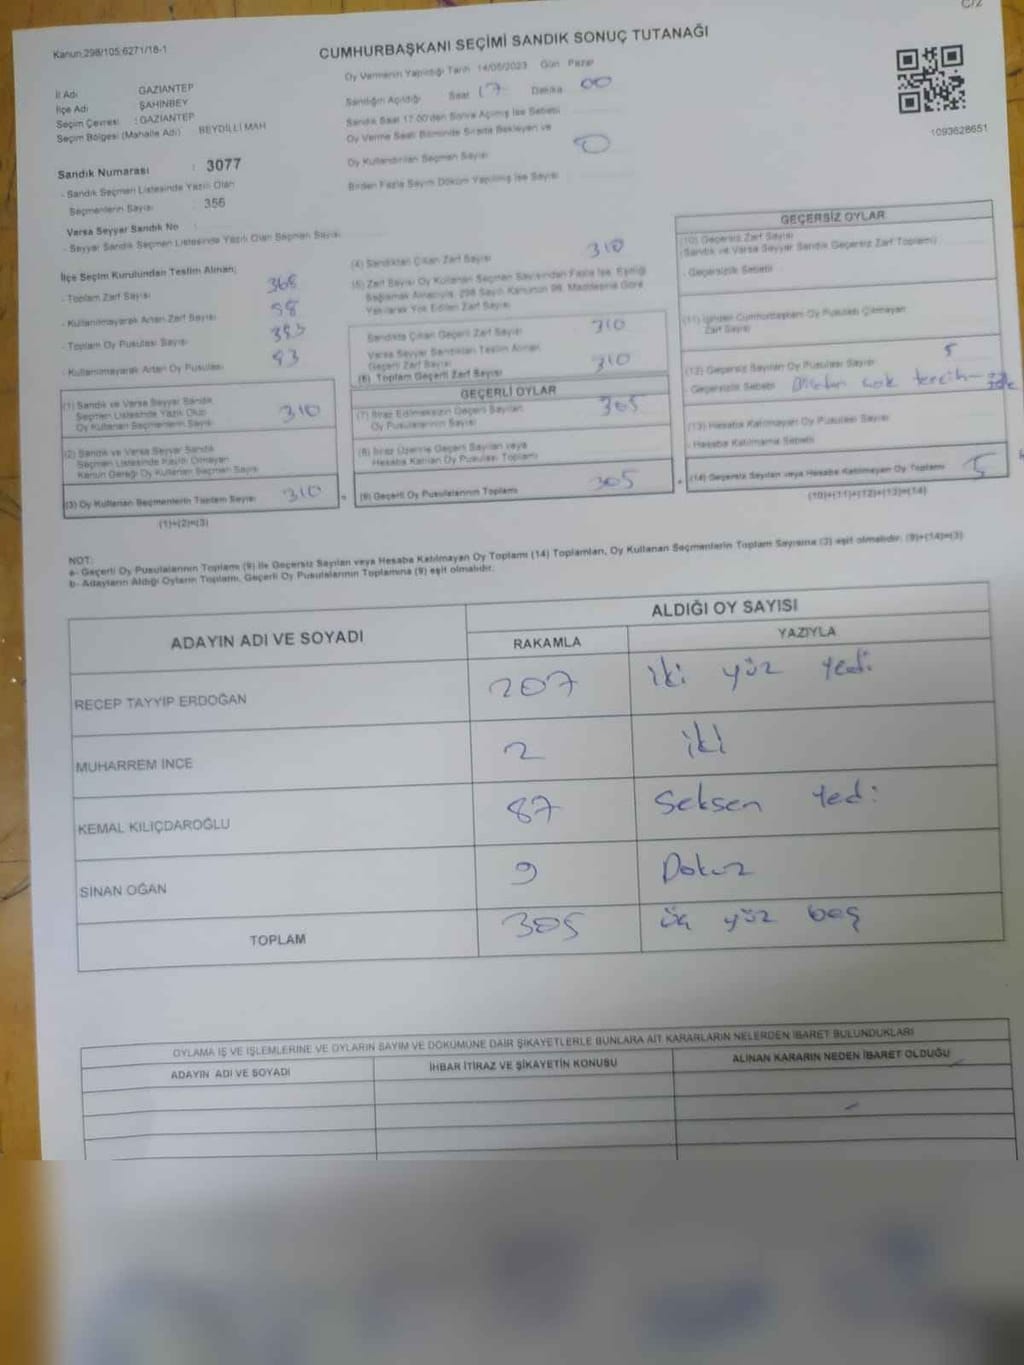 C/2
Kanun:298/105;6271/18-1
CUMHURBAŞKANI SEÇİMİ SANDIK SONUÇ TUTANAĞI
Oy Vermenin Yapıldığı Tarih 14/05/2023 Gün Pazar
İl Adı GAZİANTEP
İlçe Adı ŞAHİNBEY
Seçim Çevresi : GAZİANTEP
Seçim Bölgesi (Mahalle Adı) BEYDİLLİ MAH
Sandığın Açıldığı Saat 17 Dakika 00
Sandık Saat 17.00'den Sonra Açılmış İse Sebebi
Oy Verme Saati Bitiminde Sırada Bekleyen ve
Oy Kullandırılan Seçmen Sayısı 0
Birden Fazla Sayım Döküm Yapılmış İse Sayısı
1093628651
Sandık Numarası : 3077
- Sandık Seçmen Listesinde Yazılı Olan
Seçmenlerin Sayısı 356
Varsa Seyyar Sandık No
- Seyyar Sandık Seçmen Listesinde Yazılı Olan Seçmen Sayısı
İlçe Seçim Kurulundan Teslim Alınan;
- Toplam Zarf Sayısı 368
- Kullanılmayarak Artan Zarf Sayısı 58
- Toplam Oy Pusulası Sayısı
- Kullanılmayarak Artan Oy Pusulası
(1) Sandık ve Varsa Seyyar Sandık
Seçmen Listesinde Yazılı Olup
Oy Kullanan Seçmenlerin Sayısı 310
(2) Sandık ve Varsa Seyyar Sandık
Seçmen Listesinde Kayıtlı Olmayan
Kanun Gereği Oy Kullanan Seçmen Sayısı
(3) Oy Kullanan Seçmenlerin Toplam Sayısı 310
(1)+(2)=(3)
(4) Sandıktan Çıkan Zarf Sayısı 310
(5) Zarf Sayısı Oy Kullanan Seçmen Sayısından Fazla İse, Eşitliği
Sağlamak Amacıyla, 298 Sayılı Kanunun 98. Maddesine Göre
Yakılarak Yok Edilen Zarf Sayısı
Sandıkta Çıkan Geçerli Zarf Sayısı 310
Varsa Seyyar Sandıktan Teslim Alınan
Geçerli Zarf Sayısı
(6) Toplam Geçerli Zarf Sayısı 310
GEÇERLİ OYLAR
(7) İtiraz Edilmeksizin Geçerli Sayılan
Oy Pusulalarının Sayısı 305
(8) İtiraz Üzerine Geçerli Sayılan veya
Hesaba Katılan Oy Pusulası Toplamı
(9) Geçerli Oy Pusulalarının Toplamı 305
GEÇERSİZ OYLAR
(10) Geçersiz Zarf Sayısı
(Sandık ve Varsa Seyyar Sandık Geçersiz Zarf Toplamı)
- Geçersizlik Sebebi
(11) İçinden Cumhurbaşkanı Oy Pusulası Çıkmayan
Zarf Sayısı
(12) Geçersiz Sayılan Oy Pusulası Sayısı 5
Geçersizlik Sebebi Birden çok tercih
(13) Hesaba Katılmayan Oy Pusulası Sayısı
- Hesaba Katılmama Sebebi
(14) Geçersiz Sayılan veya Hesaba Katılmayan Oy Toplamı 5
(10)+(11)+(12)+(13)=(14)
NOT:
a- Geçerli Oy Pusulalarının Toplamı (9) ile Geçersiz Sayılan veya Hesaba Katılmayan Oy Toplamı (14) Toplamları, Oy Kullanan Seçmenlerin Toplam Sayısına (3) eşit olmalıdır. (9)+(14)=(3)
b- Adayların Aldığı Oyların Toplamı, Geçerli Oy Pusulalarının Toplamına (9) eşit olmalıdır.
ADAYIN ADI VE SOYADI
ALDIĞI OY SAYISI
RAKAMLA YAZIYLA
RECEP TAYYİP ERDOĞAN 207 iki yüz yedi
MUHARREM İNCE 2 iki
KEMAL KILIÇDAROĞLU 87 Seksen Yedi
SİNAN OĞAN 9 Dokuz
TOPLAM 305 üç yüz beş
OYLAMA İŞ VE İŞLEMLERİNE VE OYLARIN SAYIM VE DÖKÜMÜNE DAİR ŞİKAYETLERLE BUNLARA AİT KARARLARIN NELERDEN İBARET BULUNDUKLARI
ADAYIN ADI VE SOYADI İHBAR İTİRAZ VE ŞİKAYETİN KONUSU ALINAN KARARIN NEDEN İBARET OLDUĞU